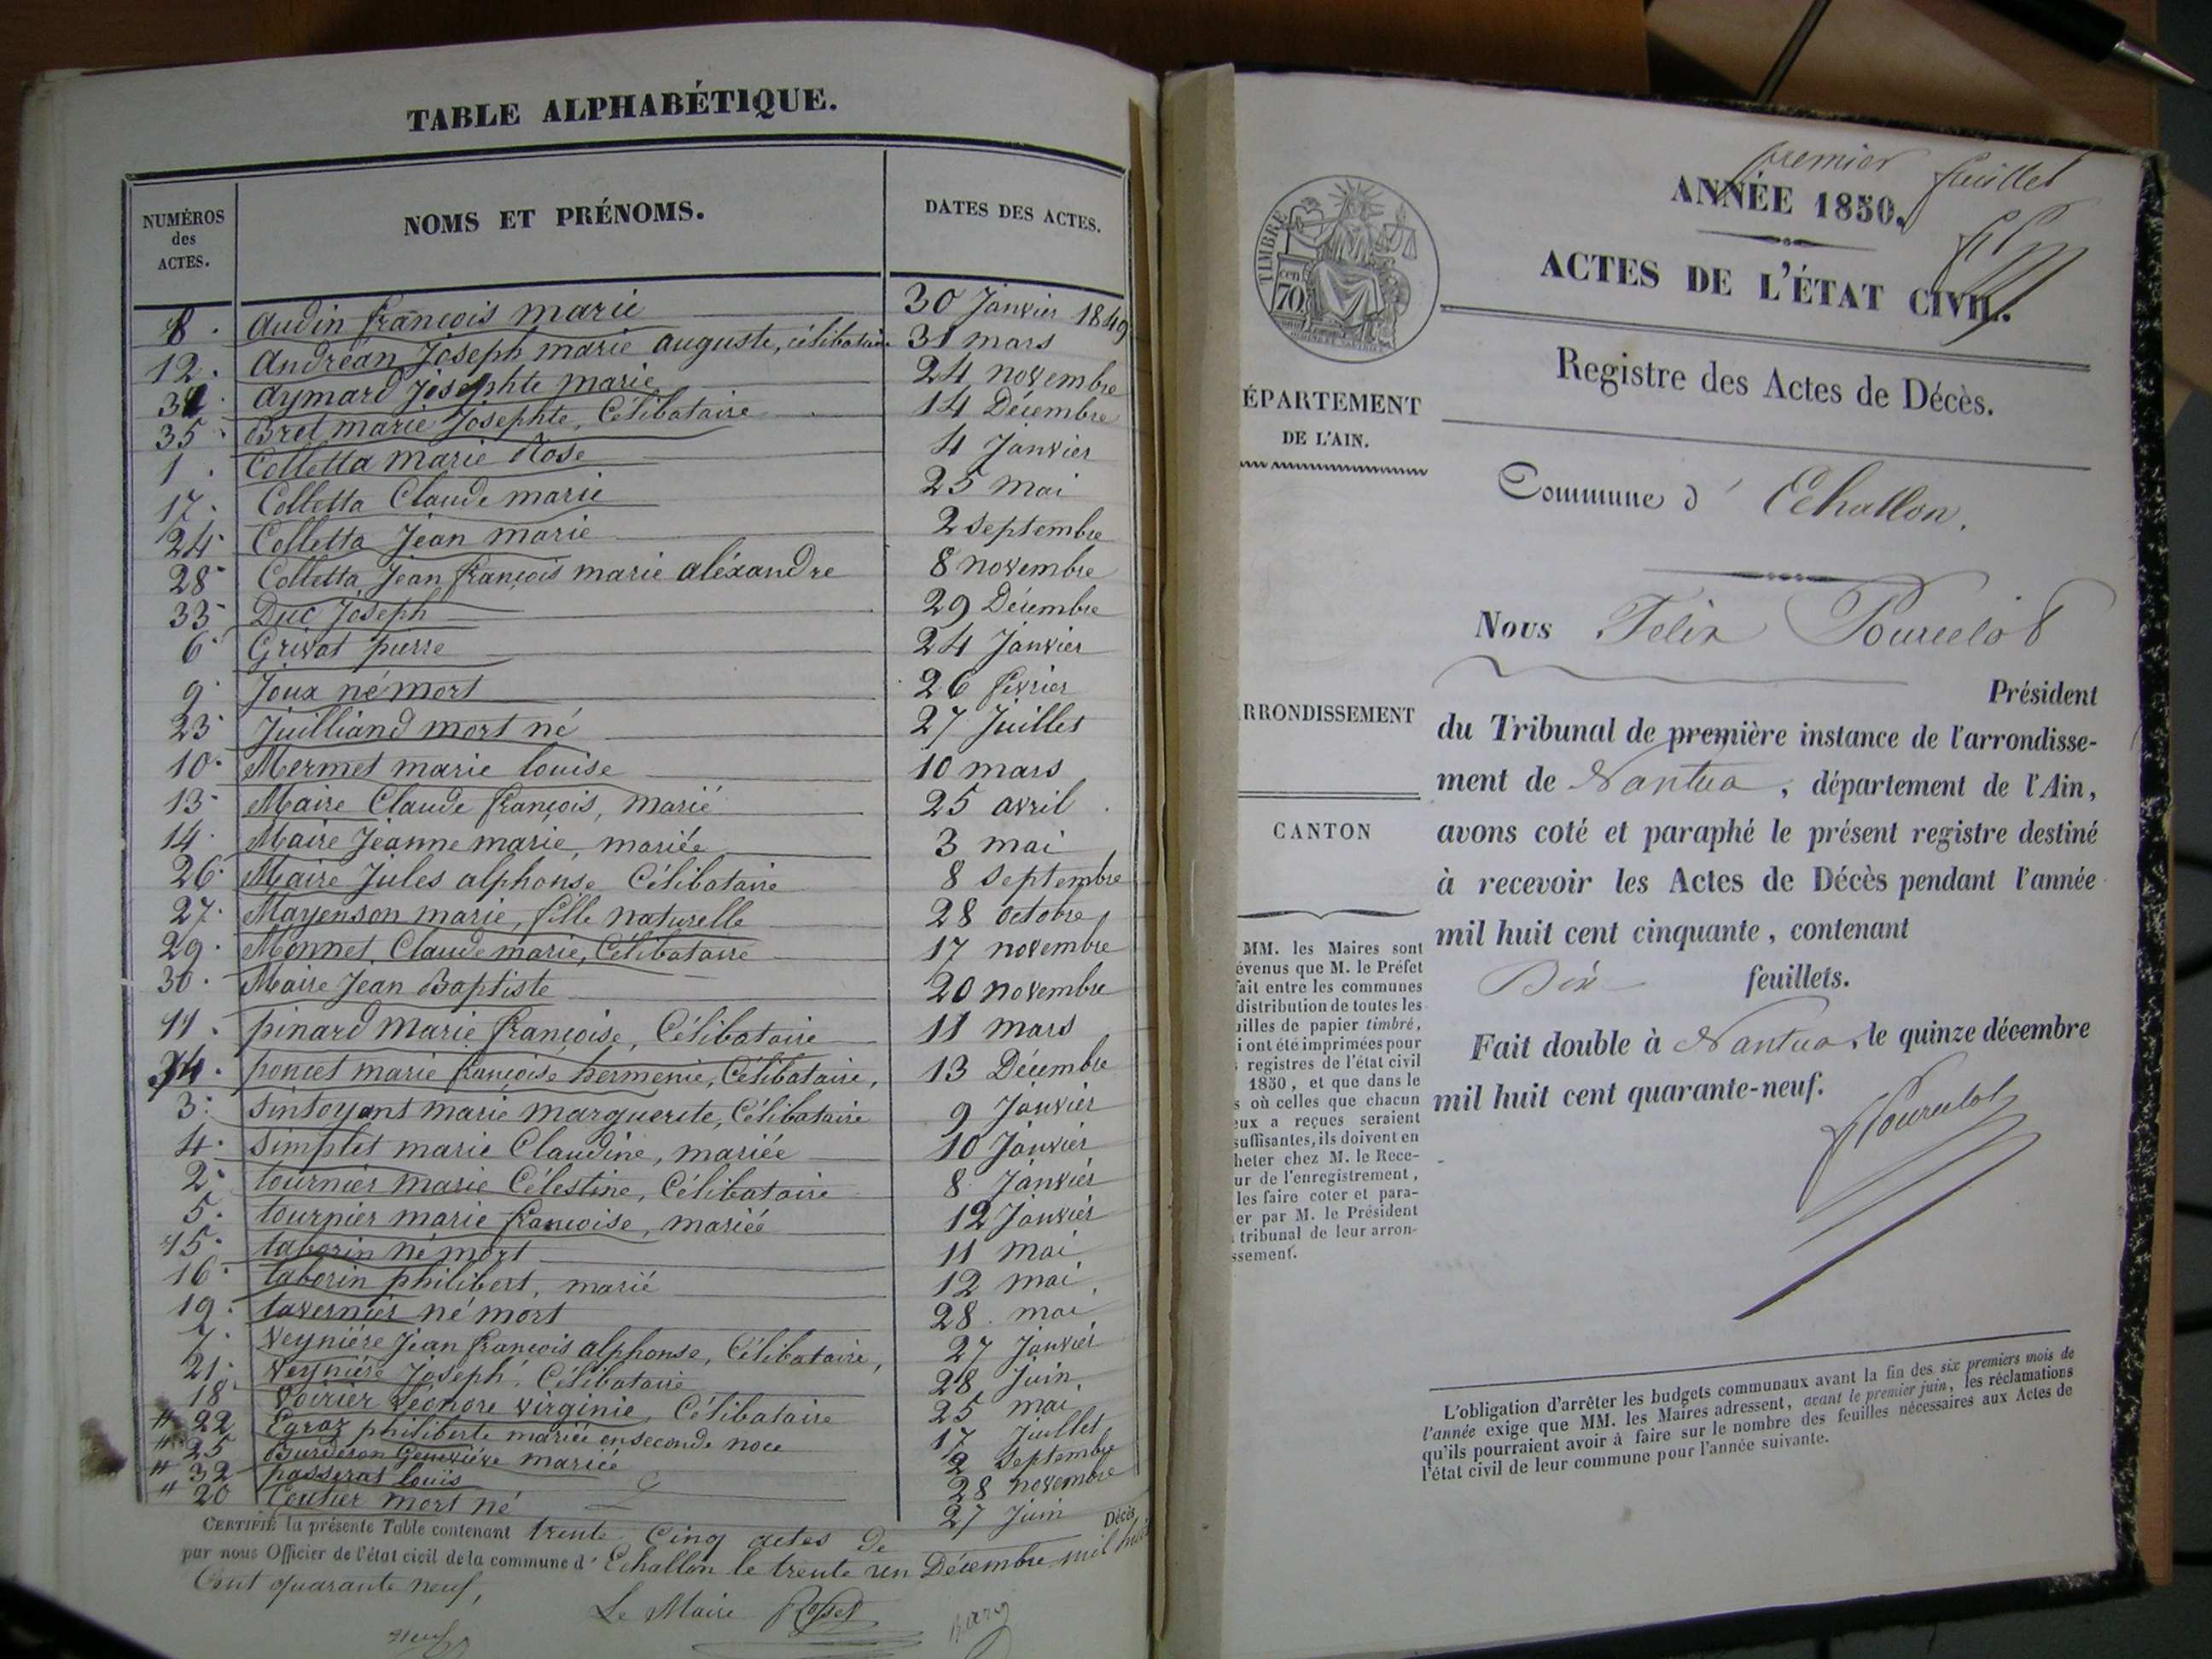 TABLE ALPHABÉTIQUE.
NUMÉROS des ACTES. NOMS ET PRÉNOMS. DATES DES ACTES.
8. Audin françois marie 30 Janvier 1849
12. Andréan Joseph marie auguste, célibataire 31 mars
31. Aymard Josephte marie 24 novembre
35. Bret marie Josephte, Célibataire 14 Décembre
1. Colletta marie Rose 4 Janvier
17. Colletta Claude marie 25 mai
24. Colletta Jean marie 2 septembre
28. Colletta Jean françois marie aléxandre 8 novembre
33. Duc Joseph 29 Décembre
6. Grivat pierre 24 Janvier
9. Joux né mort 26 février
23. Juilliand mort né 27 Juillet
10. Mermet marie louise 10 mars
13. Maire Claude françois, marié 25 avril
14. Maire Jeanne marie, mariée 3 mai
26. Maire Jules alphonse Célibataire 8 septembre
27. Mayenson marie, fille naturelle 28 octobre
29. Monnet Claude marie, Célibataire 17 novembre
30. Maire Jean Baptiste 20 novembre
11. pinard marie françoise, Célibataire 11 mars
34. poncet marie françoise hermenie, Célibataire, 13 Décembre
3. Sintoyant marie marguerite, Célibataire 9 Janvier
4. Simplet marie Claudine, mariée 10 Janvier
2. tournier marie Célestine, Célibataire 8 Janvier
5. tournier marie françoise, mariée 12 Janvier
15. taborin né mort 11 mai
16. taborin philibert, marié 12 mai
19. tavernier né mort 28 mai
7. Veyniére Jean françois alphonse, Célibataire, 27 Janvier
21. Veyniére Joseph, Célibataire 28 Juin
18 Voirier Léonore virginie, Célibataire 25 mai
" 22 Egraz philiberte mariée en seconde noce 17 Juillet
" 25 Burderon Geneviève mariée 2 Septembre
" 32 passerat louis 28 novembre
" 20 Coutier mort né 27 Juin
CERTIFIÉ la présente Table contenant trente Cinq actes de Décès
par nous Officier de l'état civil de la commune d' Echallon le trente un Décembre mil huit
Cent quarante neuf,
Le Maire Rosset
neuf
premier feuillet
ANNÉE 1850.
ACTES DE L'ÉTAT CIVIL.
TIMBRE
70 cen
Registre des Actes de Décès.
ÉPARTEMENT
DE L'AIN.
Commune d' Echallon.
Nous Félix Pourcelot
Président
du Tribunal de première instance de l'arrondisse-
ment de Nantua, département de l'Ain,
avons coté et paraphé le présent registre destiné
à recevoir les Actes de Décès pendant l'année
mil huit cent cinquante, contenant
Dix feuillets.
Fait double à Nantua, le quinze décembre
mil huit cent quarante-neuf.
Pourcelot
RRONDISSEMENT
CANTON
MM. les Maires sont
évenus que M. le Préfet
fait entre les communes
distribution de toutes les
uilles de papier timbré,
i ont été imprimées pour
registres de l'état civil
1850, et que dans le
s où celles que chacun
eux a reçues seraient
suffisantes, ils doivent en
heter chez M. le Rece-
ur de l'enregistrement,
les faire coter et para-
er par M. le Président
tribunal de leur arron-
ssement.
L'obligation d'arrêter les budgets communaux avant la fin des six premiers mois de
l'année exige que MM. les Maires adressent, avant le premier juin, les réclamations
qu'ils pourraient avoir à faire sur le nombre des feuilles nécessaires aux Actes de
l'état civil de leur commune pour l'année suivante.